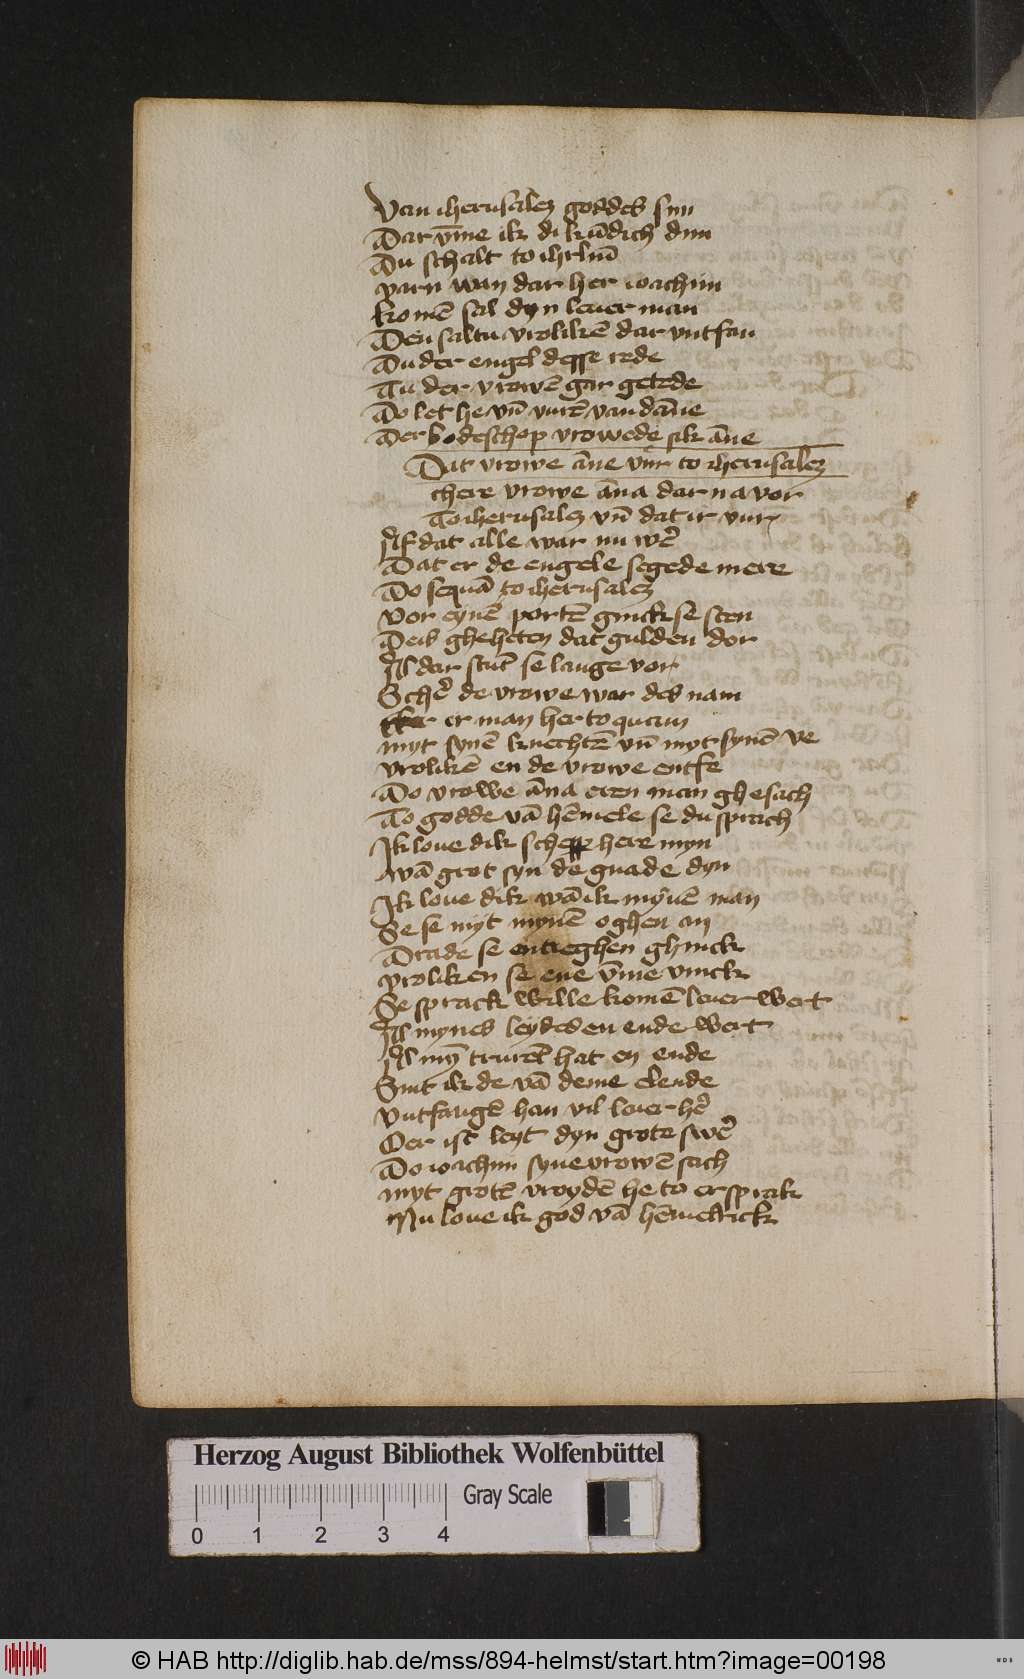 Van iherusalez goddes sun
Dar vm̄e ik di kūdich dun
Du schalt to iherl̄m
varn wan dar her ioachim
komē sal dyn leuer man
Den saltu vrolikē dar vntfan
Du der engel desse rede
Tu der vrowē gar getede
Do let he vn̄ vurē van dānne
Der bodeschop vrowede sik āne
Dat vrowe āne vur to iherusalez
there vrowe āna dar na vor
To iherusalez vn̄ dat ir vur
If dat alle war nu wē
Dat er de engele segede mere
Do se quā to iherusalez
Vor eynē portē ginck se sten
Deis gheheten dat gulden dor
Al dar stūt se lange vor
Schē de vrowe war des nam
er man her to quam
myt synē knechtē vn̄ myt synē ve
vrolikē en de vrowe entfe
Do vrowe āna eren man ghesach
To godde vā hēmele se du sprach
Ik loue dik schepper here myn
wā grot syn de gnade dyn
Ik loue dik wā ik mynē man
Se se myt mynē oghen an
Drade se entieghen ghinck
vroliken se ene vm̄e vinck
Se sprack wille komē leuer wert
Al mynes leydes en ende wert
Al mȳ trurēt hat en ende
Sint ik de vā deme elende
vntfangē han vil leuer hē
Oer ist leyt dyn grote swē
Do ioachim syne vrowē sach
myt grotē vroydē he to er sprak
Nu loue ik god vā hēmelrick
Herzog August Bibliothek Wolfenbüttel
Gray Scale
0 1 2 3 4
© HAB http://diglib.hab.de/mss/894-helmst/start.htm?image=00198